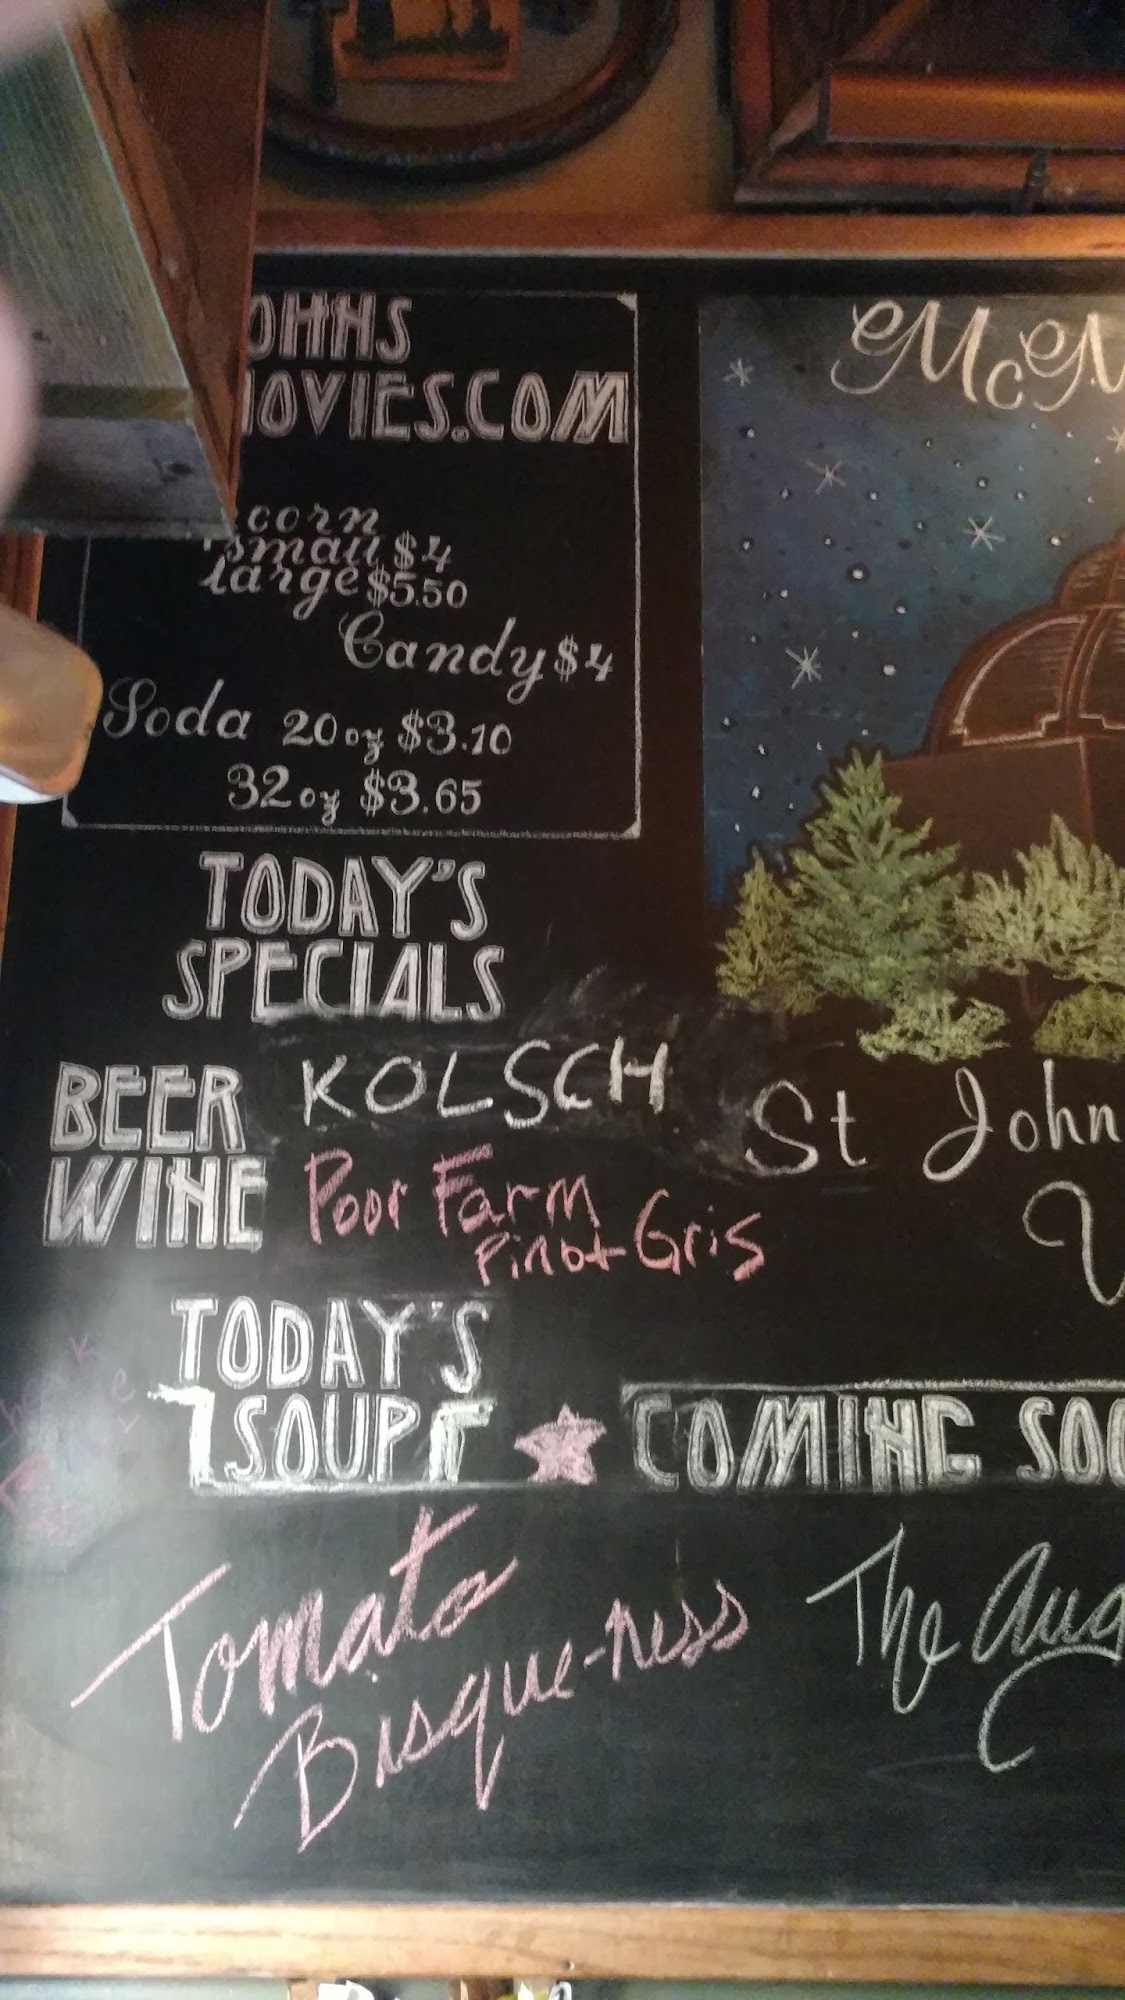 OHNS
MOVIES.COM
corn
small $4
large $5.50
Candy $4
Soda 20oz $3.10
32oz $3.65
TODAY'S
SPECIALS
BEER KOLSCH
WINE Poor Farm
Pinot Gris
TODAY'S
SOUP
Tomato
Bisque-ness
McM
St John
COMING SOO
The Aug
C